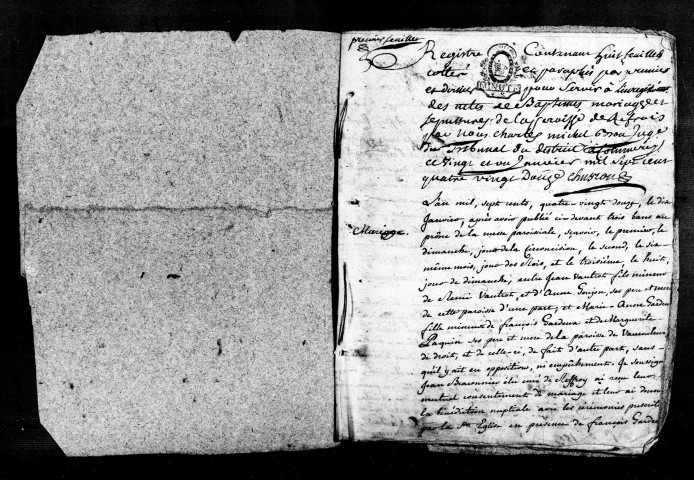 premier feuillet
Registre Contenant huit feuilles
cotté et paraphés par premier
et dernier pour servir à
MINUTE
des actes de Baptêmes mariages et
sepultures de la paroisse de
par Nous Charles michel juge
du tribunal du district
ce vingt et un Janvier mil sept cent
quatre vingt Douze
L'an mil, sept cents, quatre-vingt douze, le dix
Janvier, après avoir publié ci-devant trois bans au
Mariage.
prône de la messe paroissiale, sçavoir, le premier, le
dimanche, jour de la circoncision, le second, le six
même mois, jour des Rois, et le troisième, le huit,
jour de dimanche; entre Jean Vautrot fils mineur
de Remir Vautrot, et d'Anne Goujon, ses pere et mere
de cette paroisse d'une part; et Marie-Anne Gardeur
fille mineure de françois Gardeur et de Marguerite
Paquin ses pere et mere de la paroisse de Vaucouleurs
de droit, et de celle-ci, de fait d'autre part, sans
qu'il y ait eu opposition, ni empêchement. Je soussigné
Jean élu curé de Reffroy ai reçu leur
mutuel consentement de mariage et leur ai donné
la bénédiction nuptiale avec les cérémonies prescrites
par la Ste Eglise en présence de françois Gardeur